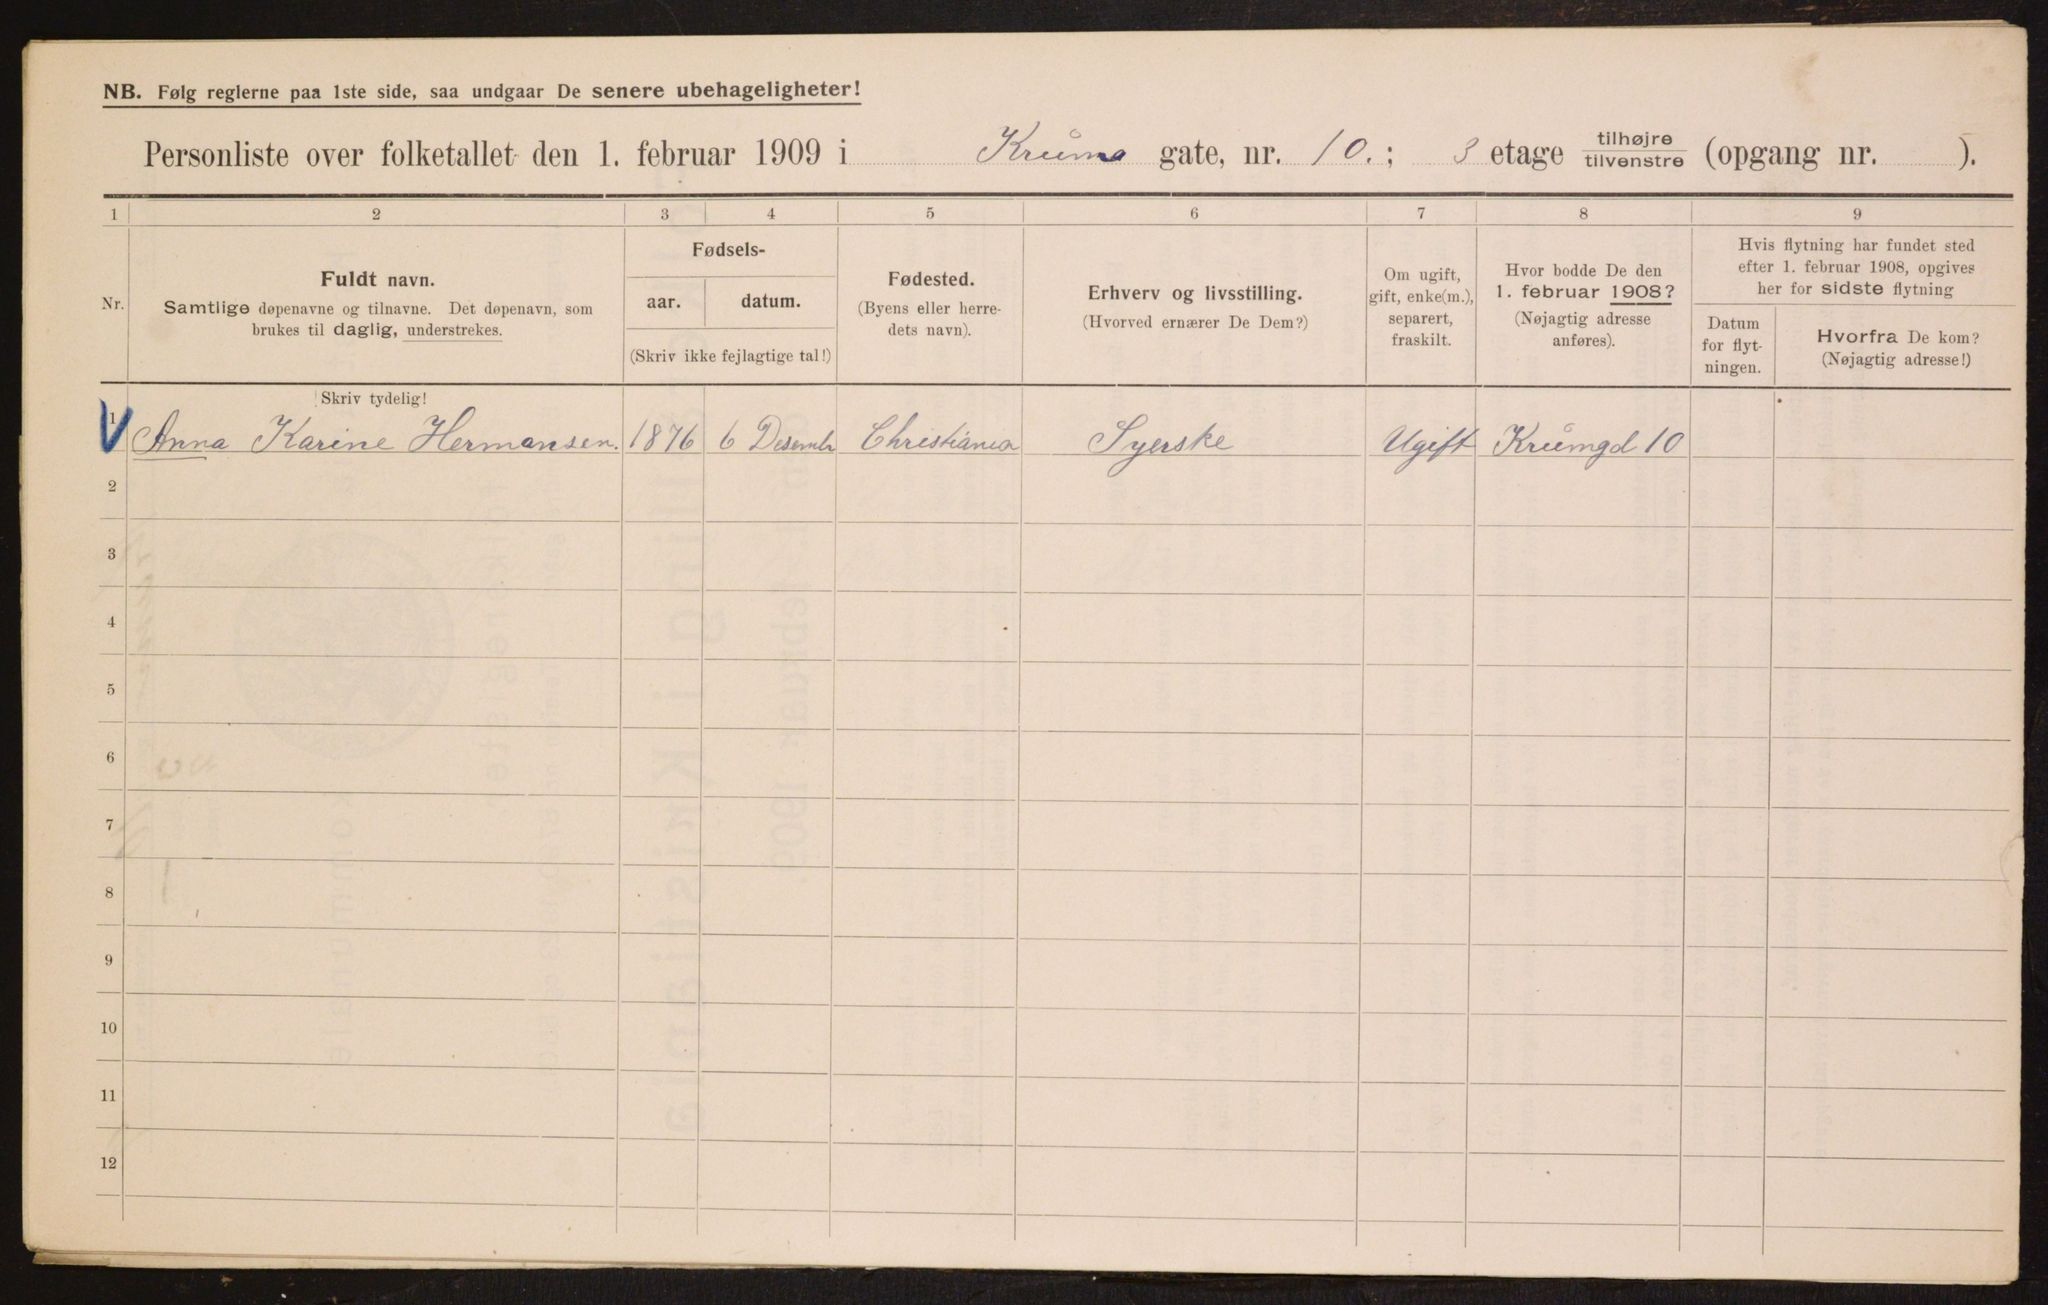 NB. Følg reglerne paa 1ste side, saa undgaar De senere ubehageligheter!
Personliste over folketallet den 1. februar 1909 i Krums gate, nr. 10. ; 3 etage tilhøjre/tilvenstre (opgang nr. ).
1 2 3 4 5 6 7 8 9
Nr.
Fuldt navn.
Samtlige døpenavne og tilnavne. Det døpenavn, som
brukes til daglig, understrekes.
Fødsels-
aar. datum.
(Skriv ikke fejlagtige tal!)
Fødested.
(Byens eller herre-
dets navn).
Erhverv og livsstilling.
(Hvorved ernærer De Dem?)
Om ugift,
gift, enke(m.),
separert,
fraskilt.
Hvor bodde De den
1. februar 1908?
(Nøjagtig adresse
anføres).
Hvis flytning har fundet sted
efter 1. februar 1908, opgives
her for sidste flytning
Datum
for flyt-
ningen.
Hvorfra De kom?
(Nøjagtig adresse!)
Skriv tydelig!
1 Anna Karine Hermansen. 1876 6 Desembr Christiania Syerske Ugift Krumgd 10
2
3
4
5
6
7
8
9
10
11
12